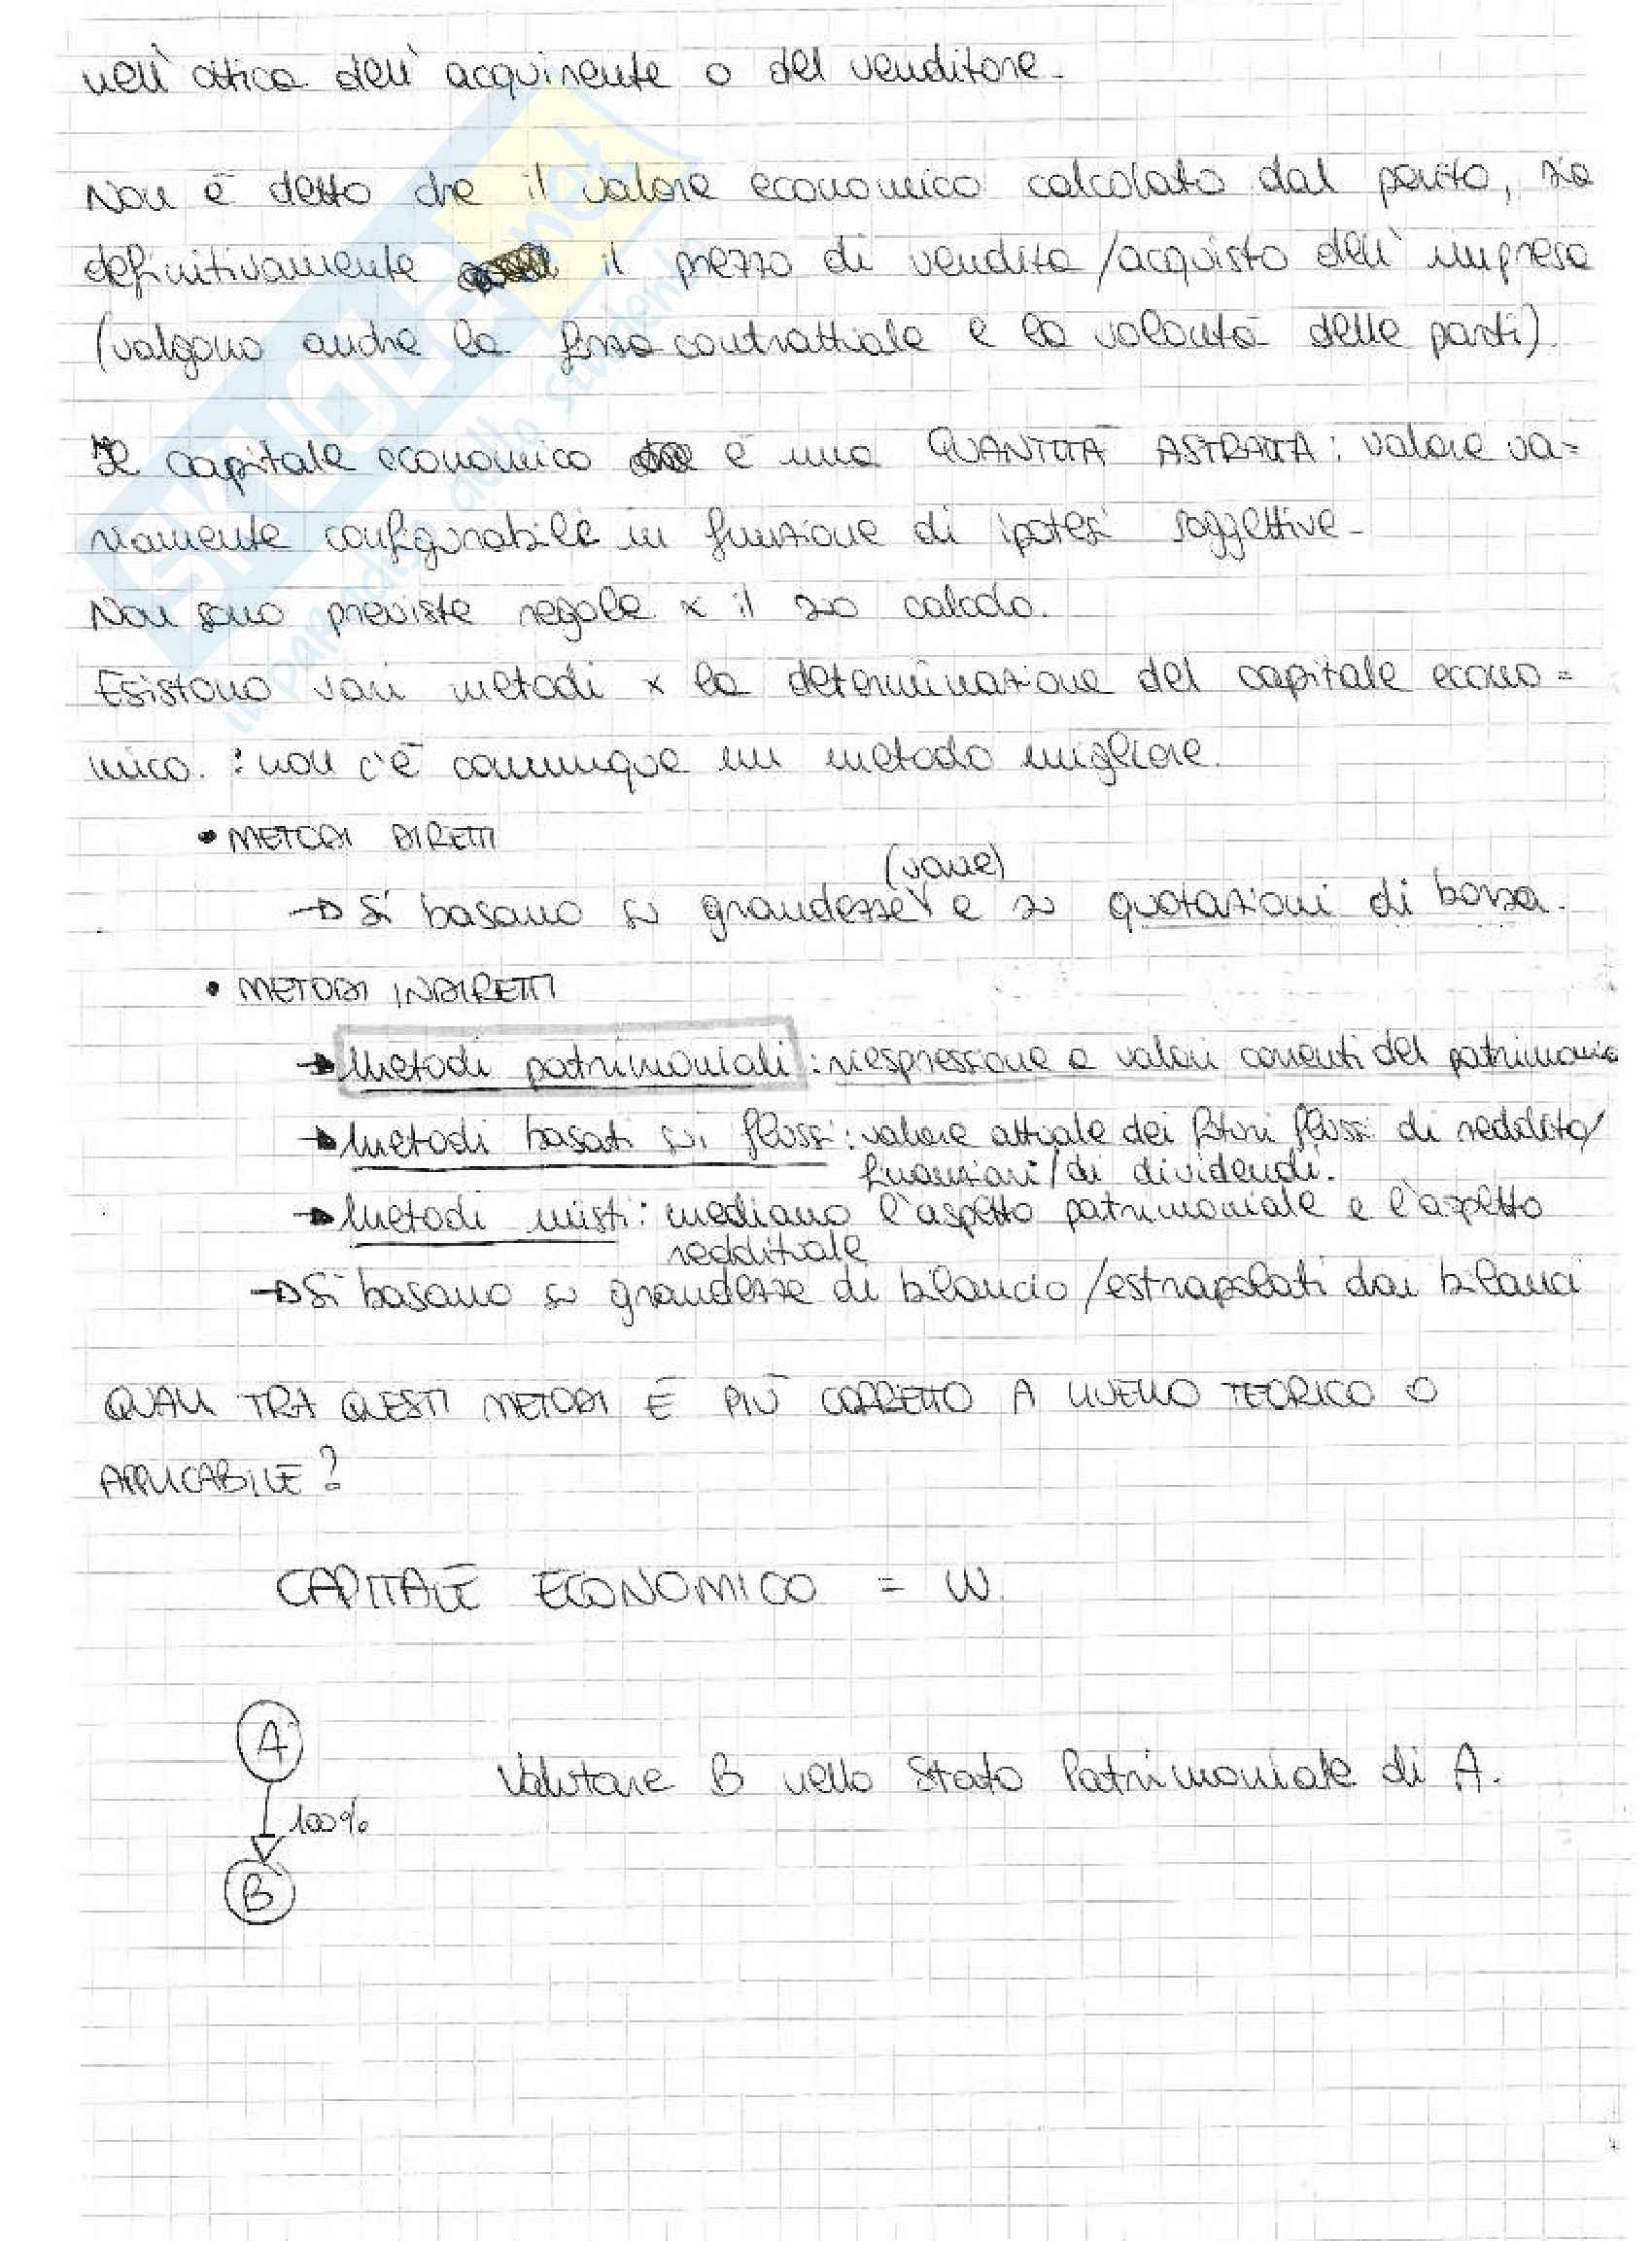 nell'ottica dell'acquirente o del venditore.
Non è detto che il valore economico calcolato dal perito, sia
definitivamente il prezzo di vendita/acquisto dell'impresa
(valgono anche la forza contrattuale e la volontà delle parti).
Il capitale economico è una QUANTITÀ ASTRATTA: valore va=
riamente configurabile in funzione di ipotesi soggettive.
Non sono previste regole x il suo calcolo.
Esistono vari metodi x la determinazione del capitale econo=
mico. : non c'è comunque un metodo migliore.
• METODI DIRETTI
(varie)
→ Si basano su grandezze e su quotazioni di borsa.
• METODI INDIRETTI
→ Metodi patrimoniali: riespressione a valori correnti del patrimonio
→ Metodi basati sui flussi: valore attuale dei futuri flussi di reddito/
finanziari/di dividendi.
→ Metodi misti: mediano l'aspetto patrimoniale e l'aspetto
reddituale
→ Si basano su grandezze di bilancio/estrapolati dai bilanci
QUALI TRA QUESTI METODI È PIÙ CORRETTO A LIVELLO TEORICO O
APPLICABILE?
CAPITALE ECONOMICO = W.
A
Valutare B nello Stato Patrimoniale di A.
100%
B
SKUOLA.net
il paradiso dello studente